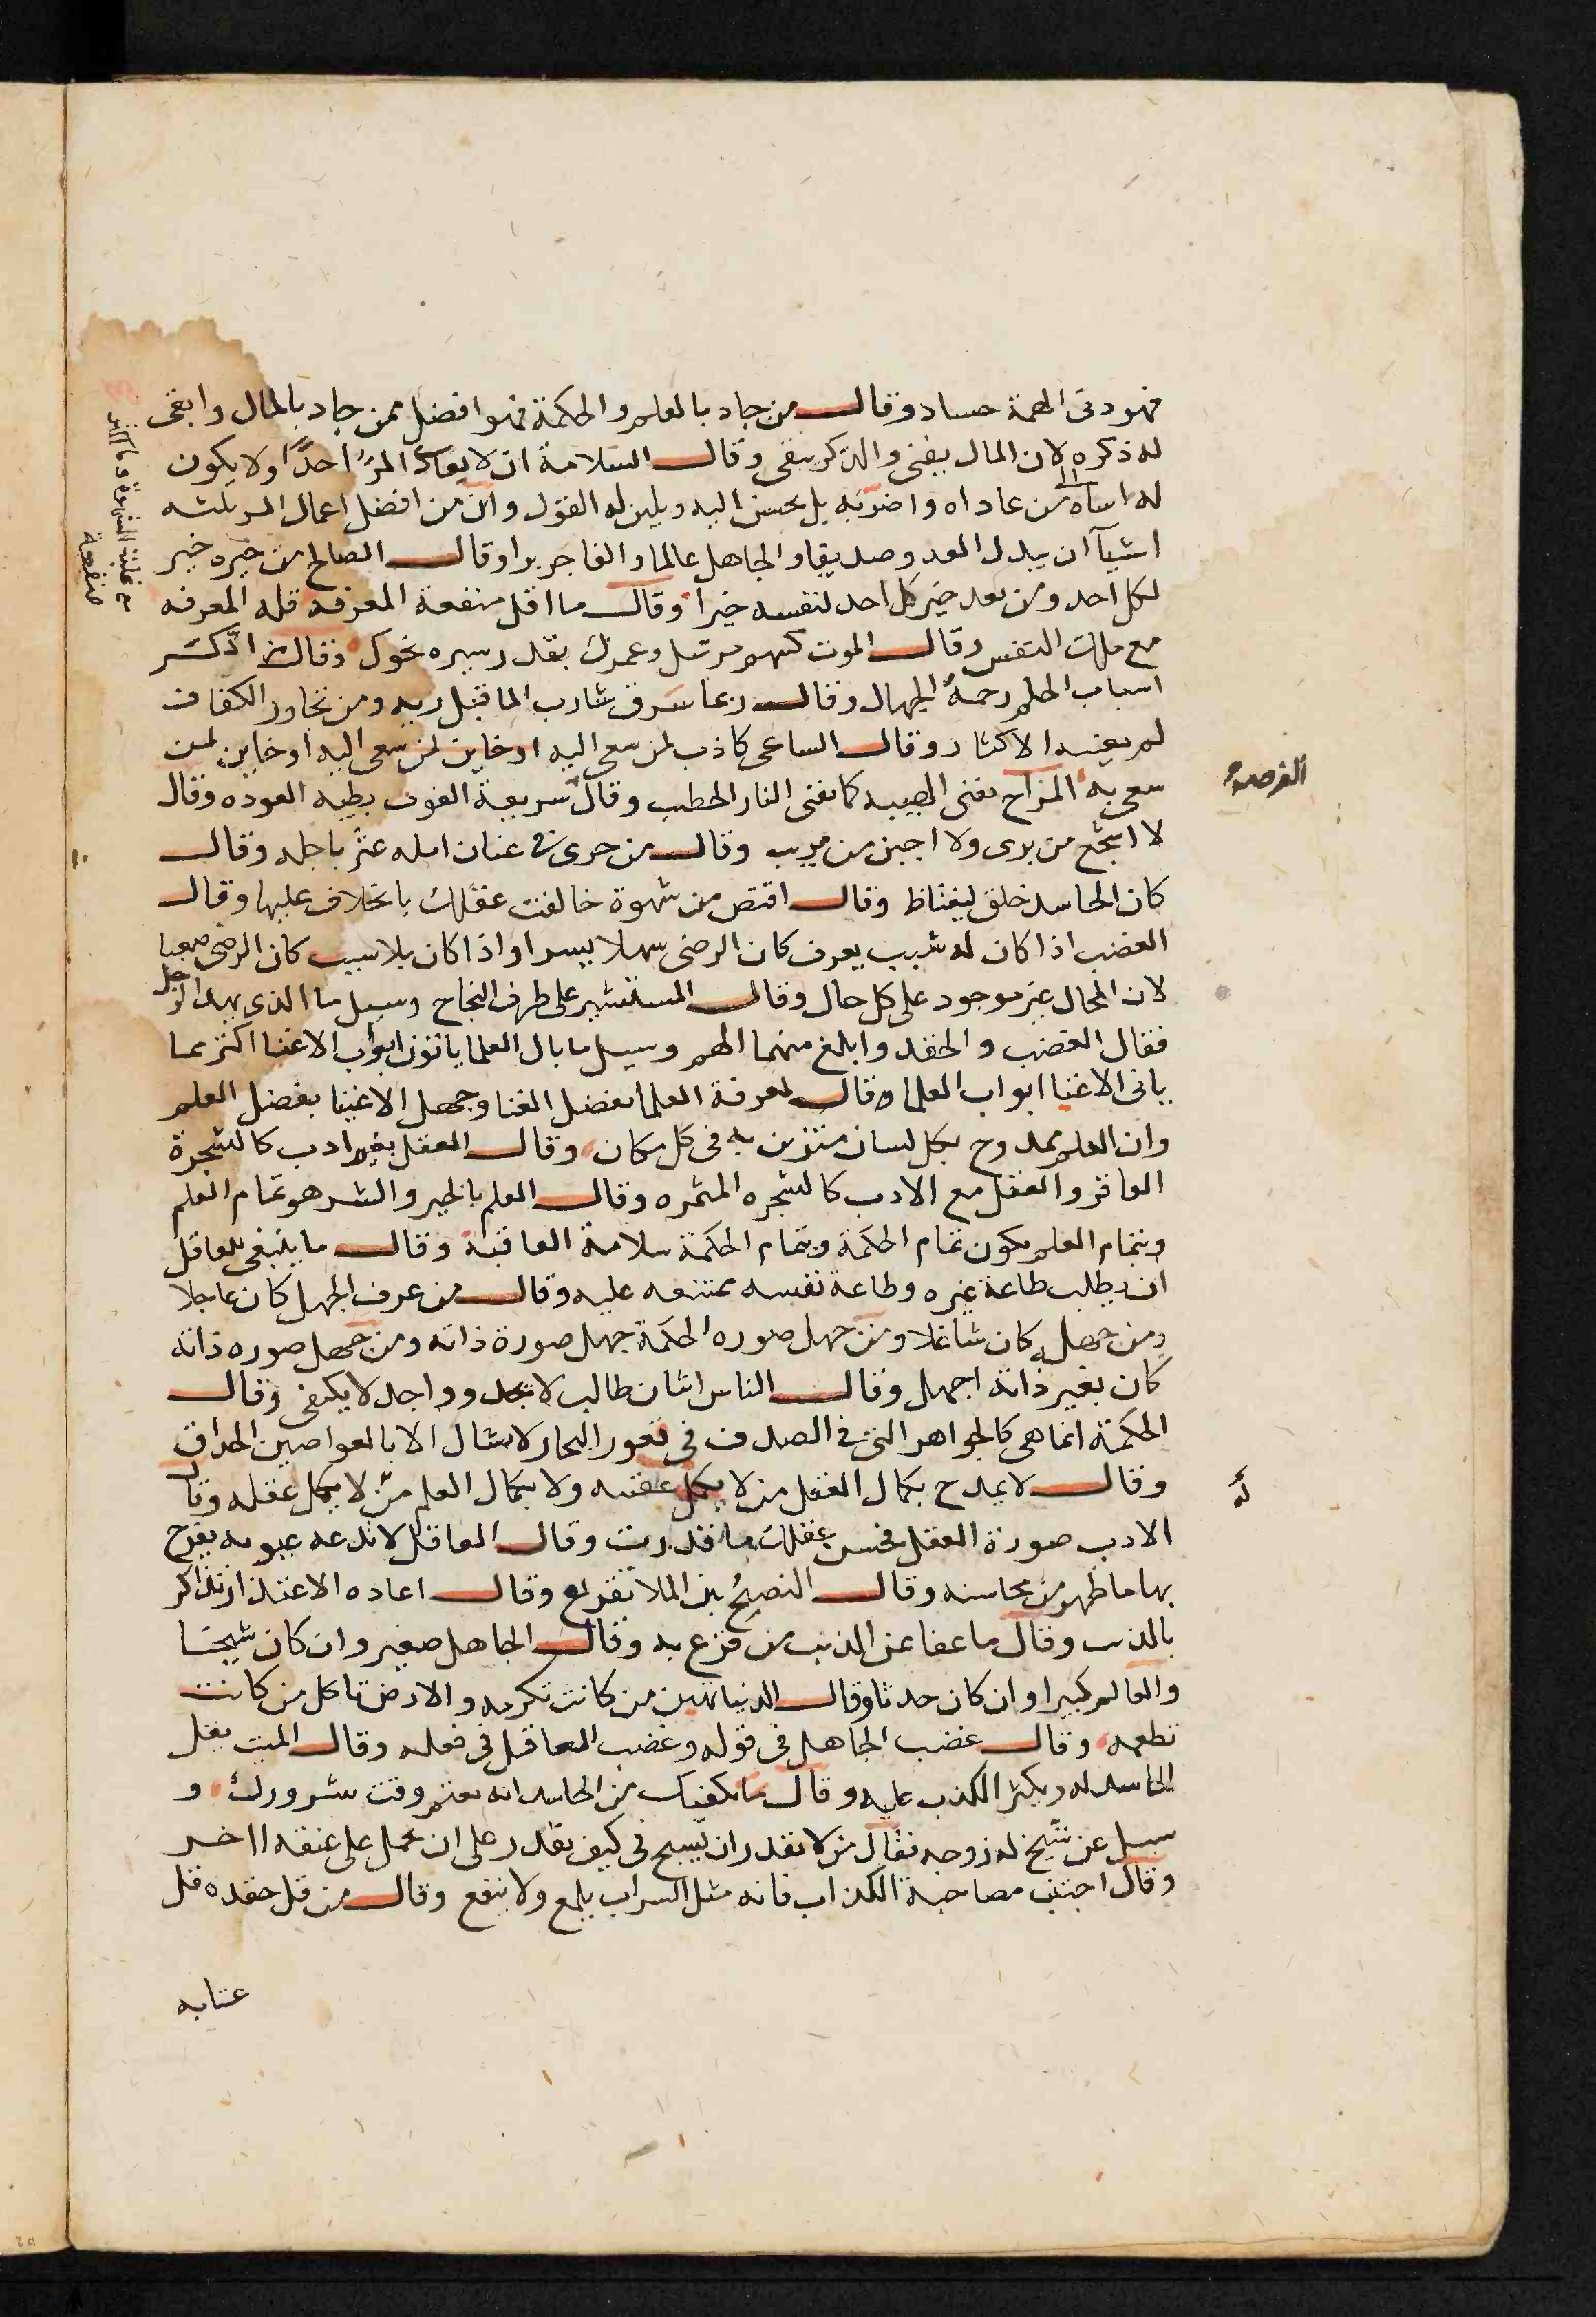 فهو دنى الهمة حساد وقال من جاد بالعلم والحكمة فهو افضل ممن جاد بالمال وابقى
له ذكره لان المال يفنى والذكر يبقى وقال السلامة ان لا يعاد المرء احدًا ولا يكون
له اساه من عاداه واضر به بل يحسن اليه ويلين له القول وان من افضل اعمال المر ثلثه
اشيآ ان يبدل العدو صديقا والجاهل عالما والفاجر برا وقال الصالح من خيره خير
لكل احد ومن يعد خير كل احد لنفسه خيرا وقال ما اقل منفعة المعرفه قله المعرفه
مع ملك النفس وقال الموت كسهم مرسل وعمرك بقدر سيره نحوك وقال من اكثر
اسباب الحلم رحمة الجهال وقال ربما شرق شارب الما قبل ريه ومن تجاوز الكفاف
لم يغنيه الاكثار وقال الساعى كاذب لمن سعى اليه او خاين لمن سعى اليه او خاين لمن
سعى به المزاح يفنى الهيبه كما تفنى النار الحطب وقال سريعة الفوت بطيه العوده وقال
لا اشجع من برى ولا اجبن من مريب وقال من جرى فى عنان امله عثر باجله وقال
كان الحاسد خلق ليغتاظ وقال اقتص من شهوة خالفت عقلك بالخلاف عليها وقال
الغضب اذا كان له سبب يعرف كان الرضى سهلا يسيرا واذا كان بلا سبب كان الرضى صعبا
لان المحال غير موجود على كل حال وقال المستشير على طرف النجاح وسيل ما الذى يهد الرجل
فقال الغضب والحقد وابلغ منهما الهم وسيل ما بال العلما ياتون ابواب الاغنيا اكثر مما
ياتى الاغنيا ابواب العلما قال لمعرفة العلما بفضل الغنا وجهل الاغنيا بفضل العلم
وان العلم ممدوح بكل لسان متزين به فى كل مكان وقال العقل بغير ادب كالشجرة
العاقر والعقل مع الادب كالشجره المثمره وقال العلم بالخير والشر هو تمام العلم
وبتمام العلم يكون تمام الحكمة وبتمام الحكمة سلامة العاقبة وقال ما ينبغى للعاقل
ان يطلب طاعة غيره وطاعة نفسه ممتنعه عليه وقال من عرف الجهل كان عاجلا
ومن جهل كان شاغلا ومن جهل صوره الحكمة جهل صورة ذاته ومن جهل صوره ذاته
كان بغير ذاته اجهل وقال الناس اثنان طالب لا يجد وواجد لا يكتفى وقال
الحكمة انما هى كالجواهر التى فى الصدف فى قعور البحار لا تنال الا بالغواصين الحذاق
وقال لا يمدح بكمال العقل من لا يكمل عفته ولا بكمال العلم من لا يكمل عقله وقال
الادب صورة العقل فحسن عقلك ما قدرت وقال العاقل لا تدعه عيوبه يفرح
بها ما ظهر من محاسنه وقال النصح بين الملا تقريع وقال اعاده الاعتذار تذاكر
بالذنب وقال ما عفا عن الذنب من قرع به وقال الجاهل صغير وان كان شيخا
والعالم كبيرا وان كان حدثا وقال الدنيا تهين من كانت تكرمه والارض تاكل من كانت
تطعمه وقال غضب الجاهل فى قوله وغضب العاقل فى فعله وقال الميت يقل
الحاسد له ويكثر الكذب عليه وقال ما يكفيك من الحاسد انه يغتم وقت سرورك و
سيل عن شيخ له زوجه فقال من لا يقدر ان يسبح فى كيف يقدر على ان يحمل على عنقه اخر
وقال اجتنب مصاحبة الكذاب فانه مثل السراب يلمع ولا ينفع وقال من قل حقده قل
عتابه
الفرصة
له
منفعة